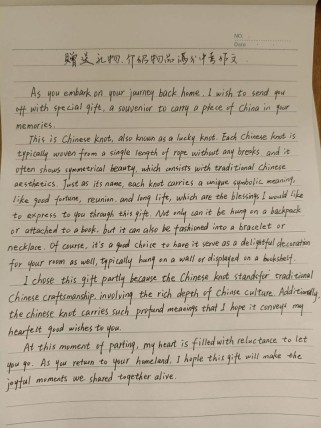 NO.
Date
赠送礼物、介绍物品满分中考作文
As you embark on your journey back home. I wish to send you
off with special gift, a souvenir to carry a piece of China in your
memories.
This is Chinese knot, also known as a lucky knot. Each Chinese knot is
typically woven from a single length of rope without any breaks, and it
often shows symmetrical beauty, which consists with traditional Chinese
aesthetics. Just as its name, each knot carries a unique symbolic meaning,
like good fortune, reunion, and long life, which are the blessings I would like
to express to you through this gift. Not only can it be hung on a backpack
or attached to a book, but it can also be fashioned into a bracelet or
necklace. Of course, it's a good choice to have it serve as a delightful decoration
for your room as well, typically hung on a wall or displayed on a bookshelf.
I chose this gift partly because the Chinese knot stands for traditional
Chinese craftsmanship, involving the rich depth of Chinse culture. Additionally,
the chinese knot carries such profound meanings that I hope it conveys my
hearfelt good wishes to you.
At this moment of parting, my heart is filled with reluctance to let
you go. As you return to your homeland, I hople this gift will make the
joyful moments we shared together alive.